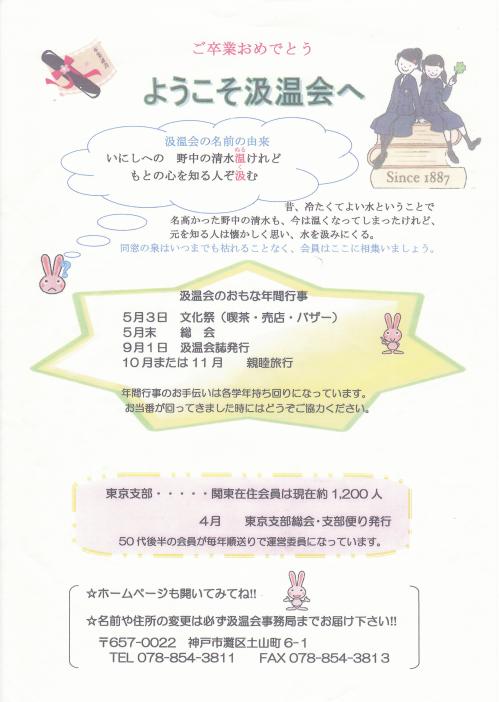 ご卒業おめでとう
ようこそ汲温会へ
汲温会の名前の由来
いにしへの　野中の清水温けれど
ぬる
もとの心を知る人ぞ汲む
く
Since 1887
昔、冷たくてよい水ということで
名高かった野中の清水も、今は温くなってしまったけれど、
元を知る人は懐かしく思い、水を汲みにくる。
同窓の泉はいつまでも枯れることなく、会員はここに相集いましょう。
?
汲温会のおもな年間行事
5月3日　文化祭（喫茶・売店・バザー）
5月末　　総　会
9月1日　汲温会誌発行
10月または11月　　親睦旅行
年間行事のお手伝いは各学年持ち回りになっています。
お当番が回ってきました時にはどうぞご協力ください。
東京支部・・・・・関東在住会員は現在約1,200人
4月　　東京支部総会・支部便り発行
50代後半の会員が毎年順送りで運営委員になっています。
☆ホームページも開いてみてね!!
☆名前や住所の変更は必ず汲温会事務局までお届け下さい!!
〒657-0022　神戸市灘区土山町6-1
TEL 078-854-3811　　FAX 078-854-3813